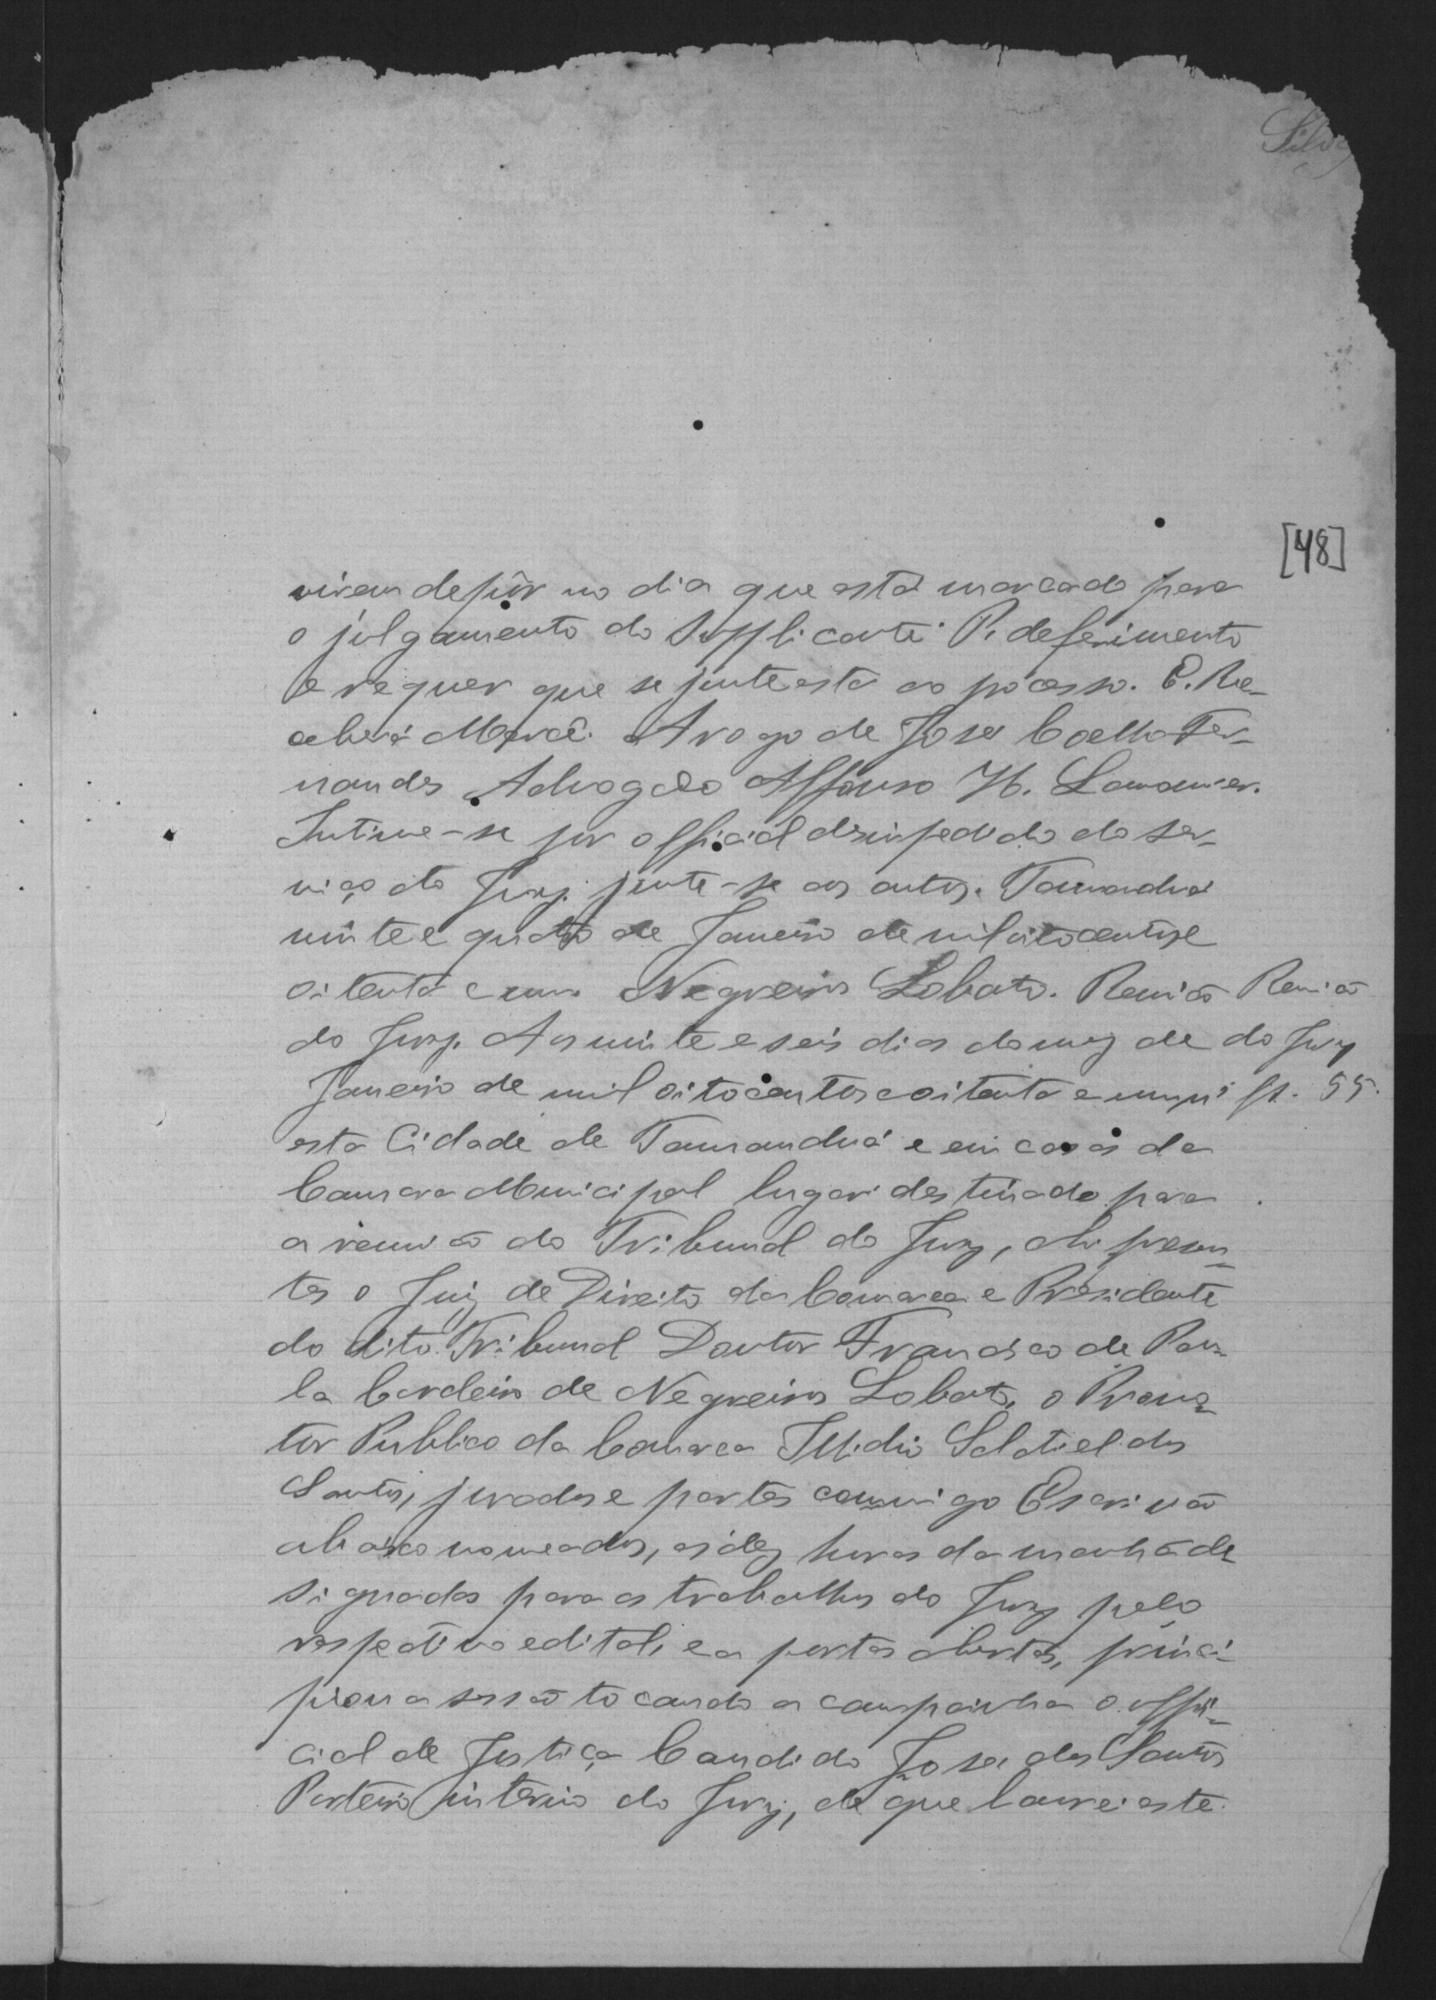 Silva
[48]
virem depôr no dia que está marcado para
o julgamento do Supplicante. P. deferimento
e requer que se junte esta ao processo. E. Re-
ceberá Mercê. A rogo de José Coelho Fer-
nandes Advogado Affonso H. Lamounier.
Intime-se por official desimpedido do ser-
viço do Jury. junte-se aos autos. Tamanduá
vinte e quatro de Janeiro de mil oitocentos e
oitenta e um. Negreiros Lobato. Reunião
Reunião
do Jury. Aos vinte e seis dias do mez de
do Jury
Janeiro de mil oitocentos e oitenta e um, n'
fl. 55.
esta Cidade de Tamanduá e em casas da
Camara Municipal lugar destinado para
a reunião do Tribunal do Jury, ahi presen-
tes o Juiz de Direito da Comarca e Presidente
do dito Tribunal Doutor Francisco de Pau-
la Cordeiro de Negreiros Lobato, o Promo-
tor Publico da Comarca Illidio Salatiel dos
Santos, jurados e partes commigo Escrivão
abaixo nomeados, as dez horas da manhã de
signadas para os trabalhos do Jury pelo
respectivo edital, e a portas abertas, princi-
piou a sessão tocando a campainha o offi-
cial de Justiça Candido José dos Santos
Porteiro interino do Jury, de que lavrei este.